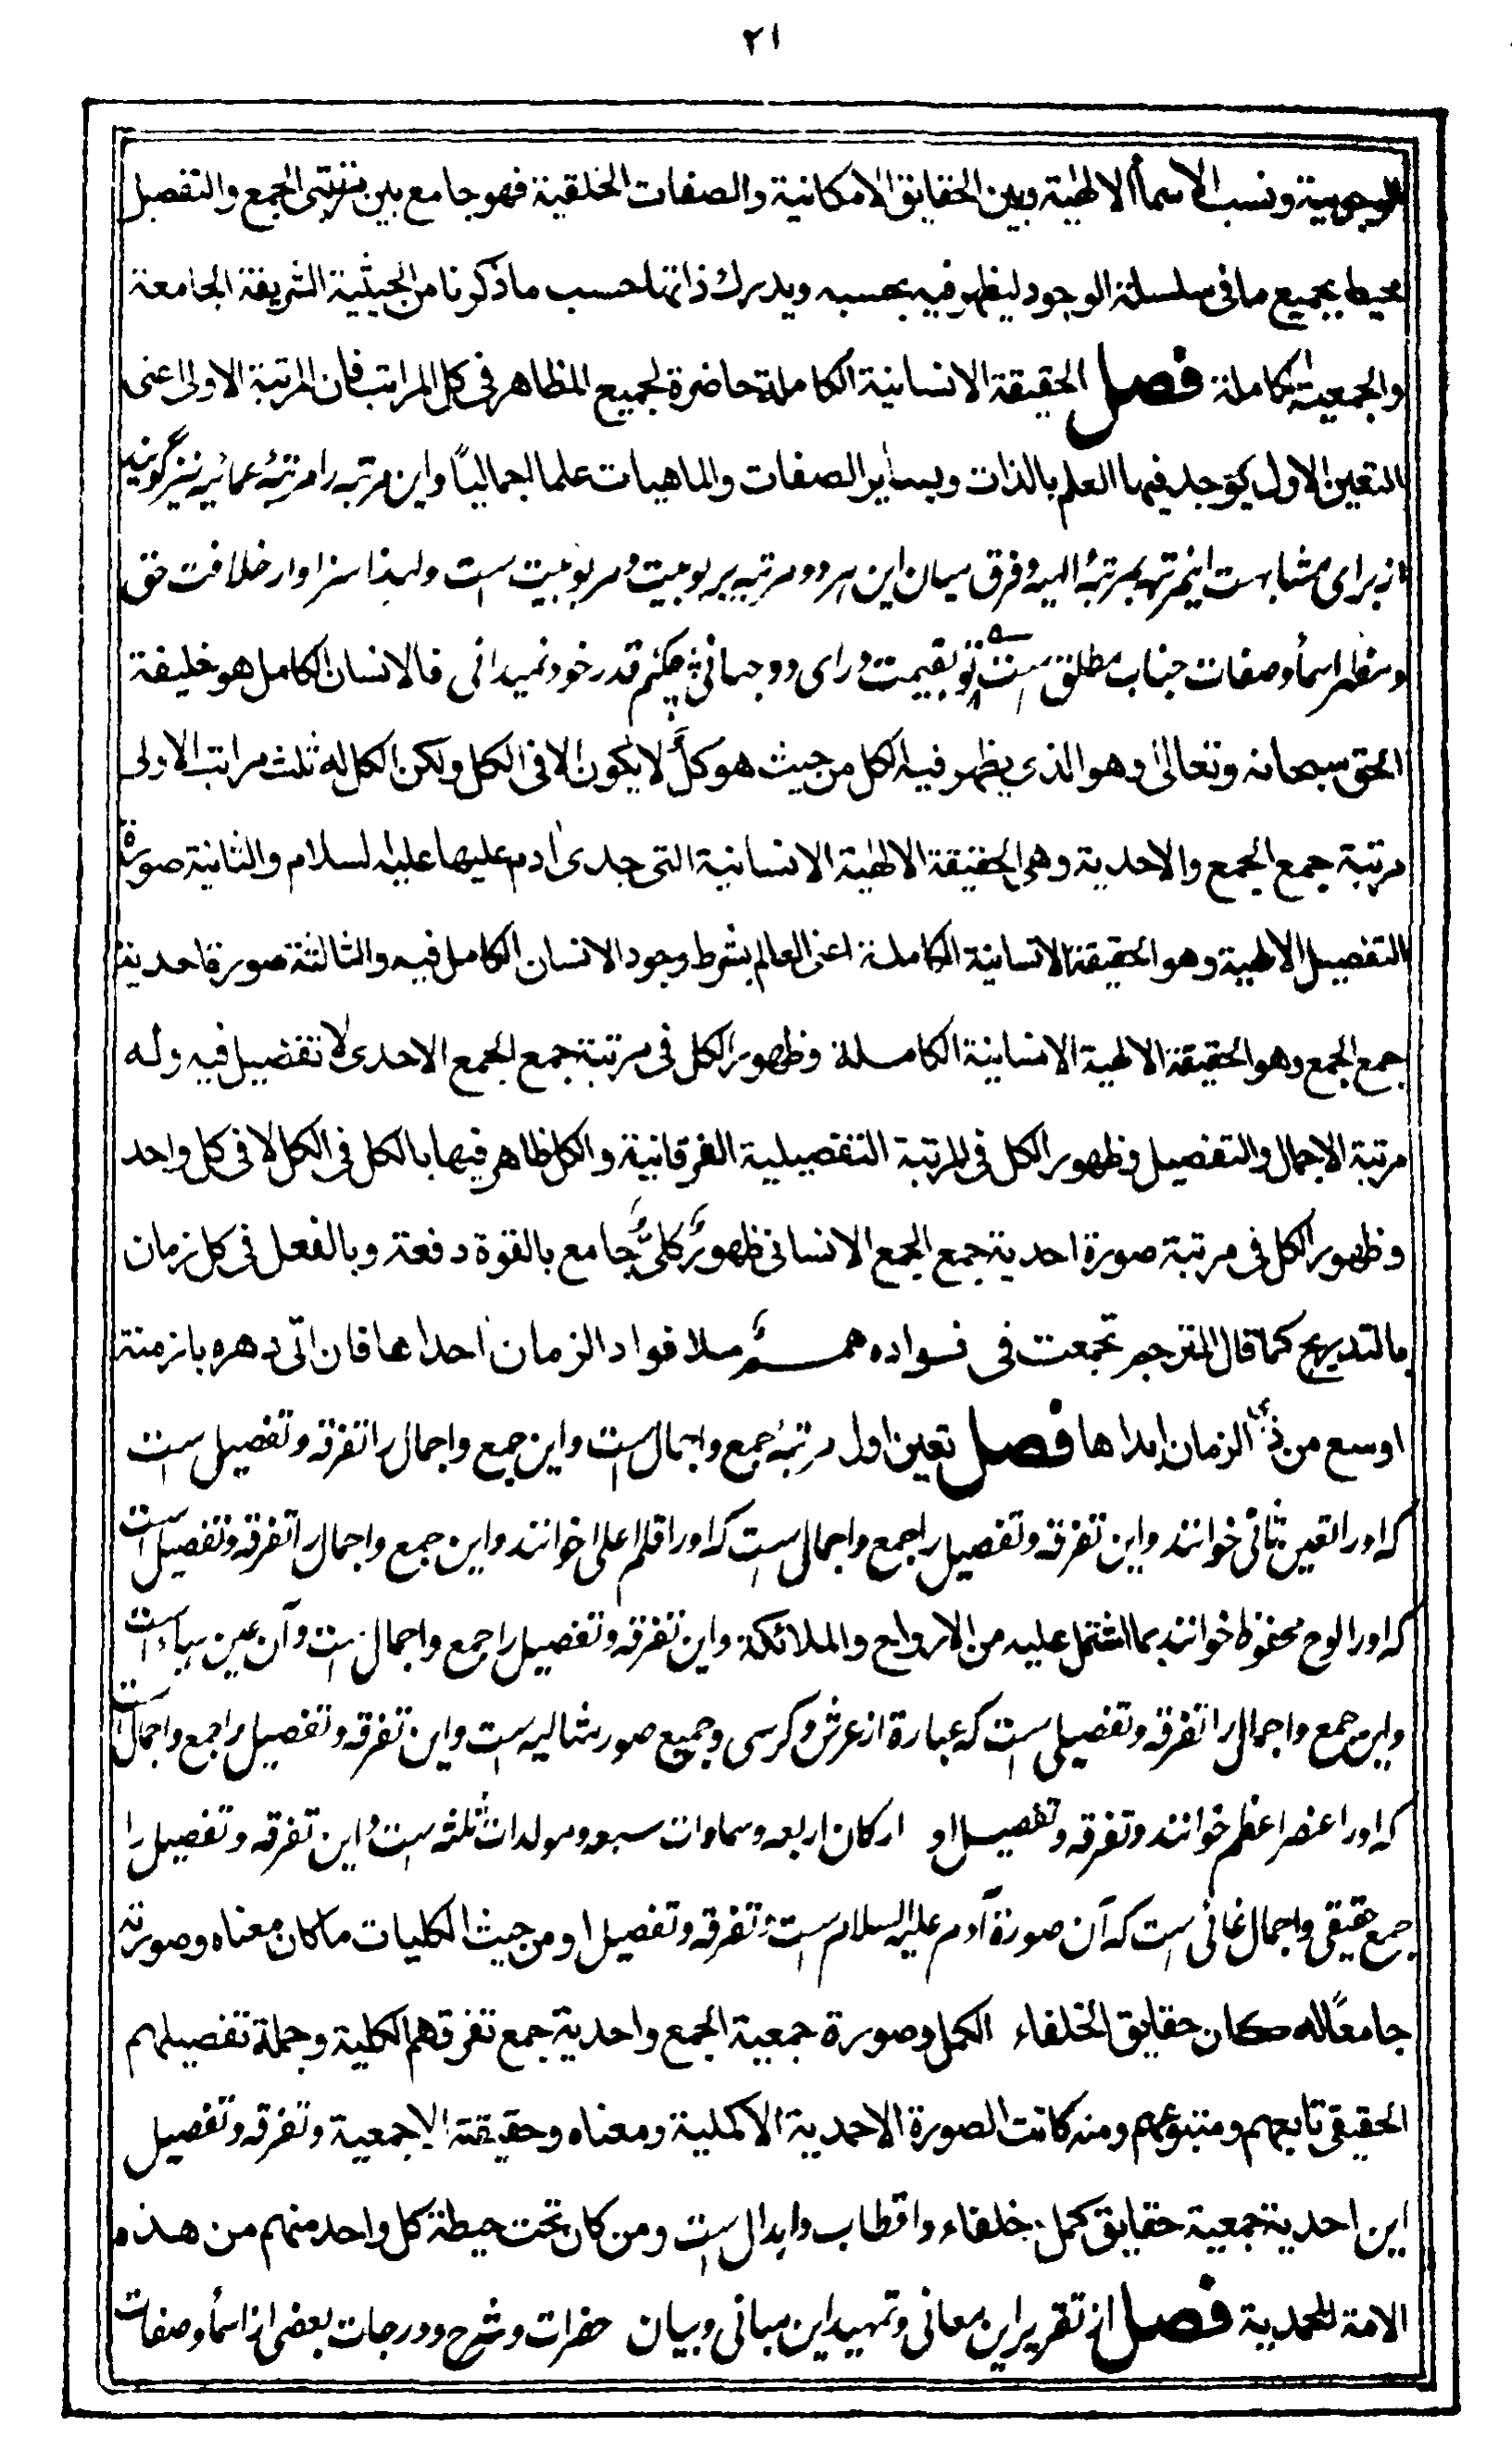 ٢١
الوجوبية ونسب الاسمأ الالهية وبين الحقايق الامكانية والصفات الخلقية فهو جامع بين مرتبتى الجمع والتفصيل
محيط بجميع ما فى سلسلة الوجود ليظهر فيه بحسبه ويدرك ذاتها حسب ما ذكرنا من الحيثية الشريفة الجامعة
والجمعية الكاملة فصل الحقيقة الانسانية الكاملة حاضرة لجميع المظاهر فى كل المراتب فان المرتبة الاولى اعنى
التعين الاول يوجد فيها العلم بالذات وبساير الصفات والماهيات علما اجماليًا واين مرتبه را مرتبهٔ عمائيه نيز گويند
از براى مشابهت اينمرتبه بمرتبهٔ الهيه و فرق ميان اين هر دو مرتبه بربوبيت و مربوبيت است ولهذا سزاوار خلافت حق
و مظهر اسمأ و صفات جناب مطلق است تو بقيمت وراى دو جهانى چكنم قدر خود نميدانى فالانسان الكامل هو خليفة
الحق سبحانه وتعالى وهو الذى يظهر فيه الكل من حيث هو كلٌّ لا يكون الا فى الكل ولكن الكل له ثلث مراتب الاولى
مرتبة جمع الجمع والاحدية وهى الحقيقة الالهية الانسانية التى حدى ادم عليها عليه السلام والثانية صورة
التفصيل الالهية وهو الحقيقة الانسانية الكاملة اعنى العالم بشرط وجود الانسان الكامل فيه والثالثة صورة احدية
جمع الجمع وهو الحقيقة الالهية الانسانية الكاملة وظهور الكل فى مرتبة جمع الجمع الاحدى لا تفصيل فيه وله
مرتبة الاجمال والتفصيل وظهور الكل فى المرتبة التفصيلية الفرقانية والكل ظاهر فيها بالكل فى الكل لا فى كل واحد
وظهور الكل فى مرتبة صورة احدية جمع الجمع الانسانى ظهورٌ كلىٌّ جامع بالقوة دفعة وبالفعل فى كل زمان
بالتدريج كما قال المترجم تجمعت فى فسواده همم ملا فواد الزمان احداها فان اتى دهره بازمنة
اوسع من ذى الزمان ابداها فصل تعين اول مرتبهٔ جمع واجمال است واين جمع واجمال را تفرقه وتفصيل ست
كه اورا تعين ثانى خوانند واين تفرقه وتفصيل را جمع واجمالى ست كه اورا قلم اعلى خوانند واين جمع واجمال را تفرقه وتفصيل است
كه اورا لوح محفوظ خوانند بما اشتمل عليه من الارواح والملائكة واين تفرقه وتفصيل را جمع واجمال ست وآن عين هباء است
واين جمع واجمال را تفرقه وتفصيلى ست كه عبارة از عرش و كرسى وجميع صور مثاليه ست واين تفرقه وتفصيل را جمع واجمال است
كه اورا عنصر اعظم خوانند وتفرقه وتفصيل او اركان اربعه وسماوات سبعه ومولدات ثلثه ست واين تفرقه وتفصيل را
جمع حقيقى واجمال غائى ست كه آن صورة آدم عليه السلام ست وتفرقه وتفصيل او من حيث الكليات ما كان معناه وصورته
جامعًا له كان حقايق الخلفاء الكمل وصورة جمعية الجمع واحدية جمع تفرقهم الكلية وجملة تفصيلهم
الحقيقى تابعهم ومتبوعهم ومنه كانت الصورة الاحمدية الاكملية ومعناه وحقيقته الاجمعية وتفرقه وتفصيل
اين احدية جمعية حقايق كمل خلفاء واقطاب وابدال ست ومن كان تحت حيطة كل واحد منهم من هذه
الامة المحمدية فصل از تقرير اين معانى وتمهيد اين مبانى وبيان حضرات وشرح ودرجات بعضى از اسمأ وصفات